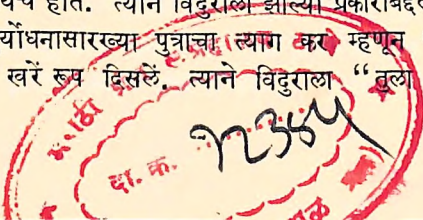 होतें. त्याने विदुराला झाल्या प्रकाराबद्दल
र्योधनासारख्या पुत्राचा त्याग कर म्हणून
खरें रूप दिसलें. त्याने विदुराला “ तुला
मराठी
दा. क्र. १२३७५